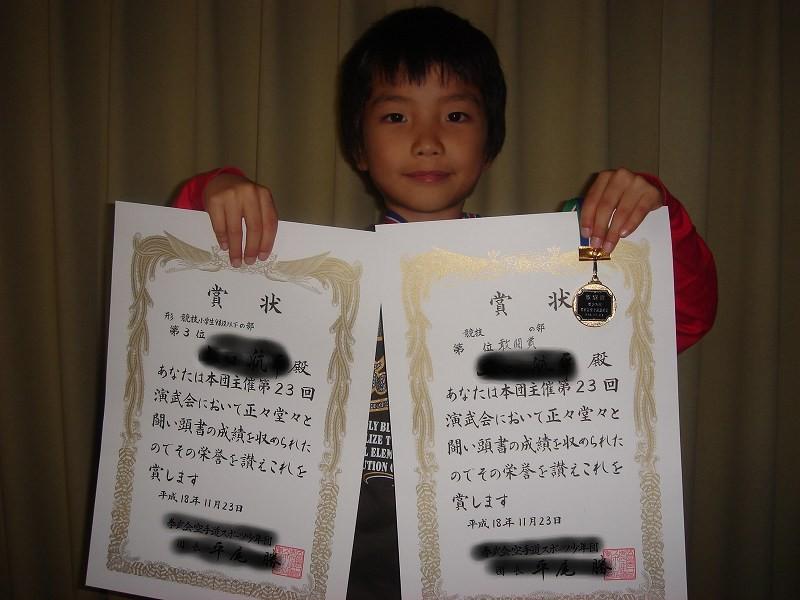 賞状
形 競技小学生4年以下の部
第3位
航平殿
あなたは本団主催第23回
演武会において正々堂々と
闘い頭書の成績を収められた
のでその栄誉を讃えこれを
賞します
平成18年11月23日
拳武会空手道スポーツ少年団
団長 平尾 勝
賞状
競技 の部
第 位 敢闘賞
航平殿
あなたは本団主催第23回
演武会において正々堂々と
闘い頭書の成績を収められた
のでその栄誉を讃えこれを
賞します
平成18年11月23日
拳武会空手道スポーツ少年団
団長 平尾 勝
敢闘賞
LY BL
LIZE T
L ELEM
UTION C